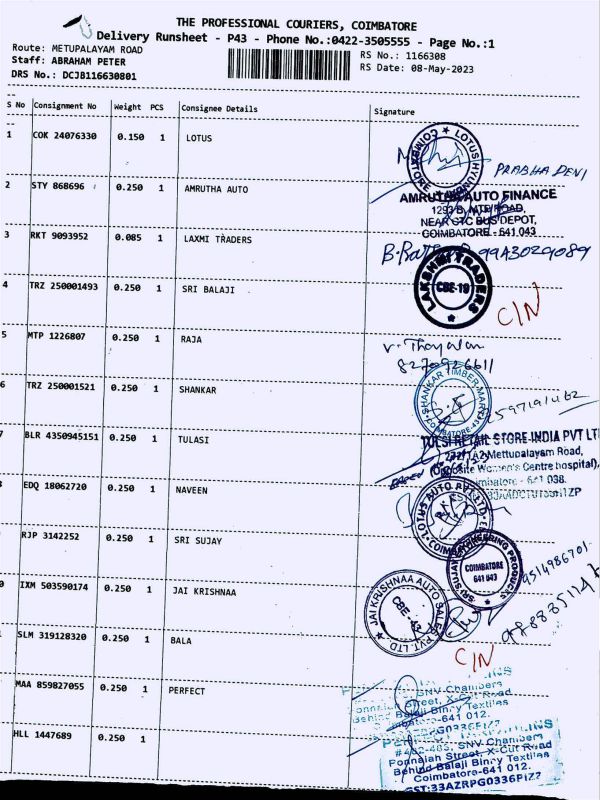 THE PROFESSIONAL COURIERS, COIMBATORE
Delivery Runsheet - P43 - Phone No.:0422-3505555 - Page No.:1
Route: METUPALAYAM ROAD
Staff: ABRAHAM PETER
DRS No.: DCJB116630801
RS No.: 1166308
RS Date: 08-May-2023
S No Consignment No Weight PCS Consignee Details Signature
1 COK 24076330 0.150 1 LOTUS
PRABHA DENI
2 STY 868696 0.250 1 AMRUTHA AUTO
AMRUTHA AUTO FINANCE
1293 B, MTP ROAD,
NEAR STC BUS DEPOT,
COIMBATORE - 641 043
3 RKT 9093952 0.085 1 LAXMI TRADERS
LAKSHMI TRADERS
CBE-19
4 TRZ 250001493 0.250 1 SRI BALAJI
C/N
5 MTP 1226807 0.250 1 RAJA
v. Thayalan
8270926611
6 TRZ 250001521 0.250 1 SHANKAR
SHANKAR TIMBER MART
COIMBATORE
7 BLR 4350945151 0.250 1 TULASI
TULSI RETAIL STORE INDIA PVT LT
232/1A2 Mettupalayam Road,
(Opposite Women's Centre hospital),
Coimbatore - 641 038.
8 EDQ 18062720 0.250 1 NAVEEN
LOTUS AUTO
RJP 3142252 0.250 1 SRI SUJAY
SRI SUJAY ENGINEERING PRODUCTS
COIMBATORE
641 043
9514986701
0 IXM 503590174 0.250 1 JAI KRISHNAA
JAI KRISHNAA AUTO SALES PVT. LTD
CBE - 43
1 SLM 319128320 0.250 1 BALA
C/N
MAA 859827055 0.250 1 PERFECT
SNV Chambers
Ponnaiah Street, X-Cut Road
Behind Balaji Binny Textiles
Coimbatore-641 012.
HLL 1447689 0.250 1
#482-483, SNV Chambers
Ponnaiah Street, X-Cut Road
Behind Balaji Binny Textiles
Coimbatore-641 012.
GST:33AZRPG0336P1Z7